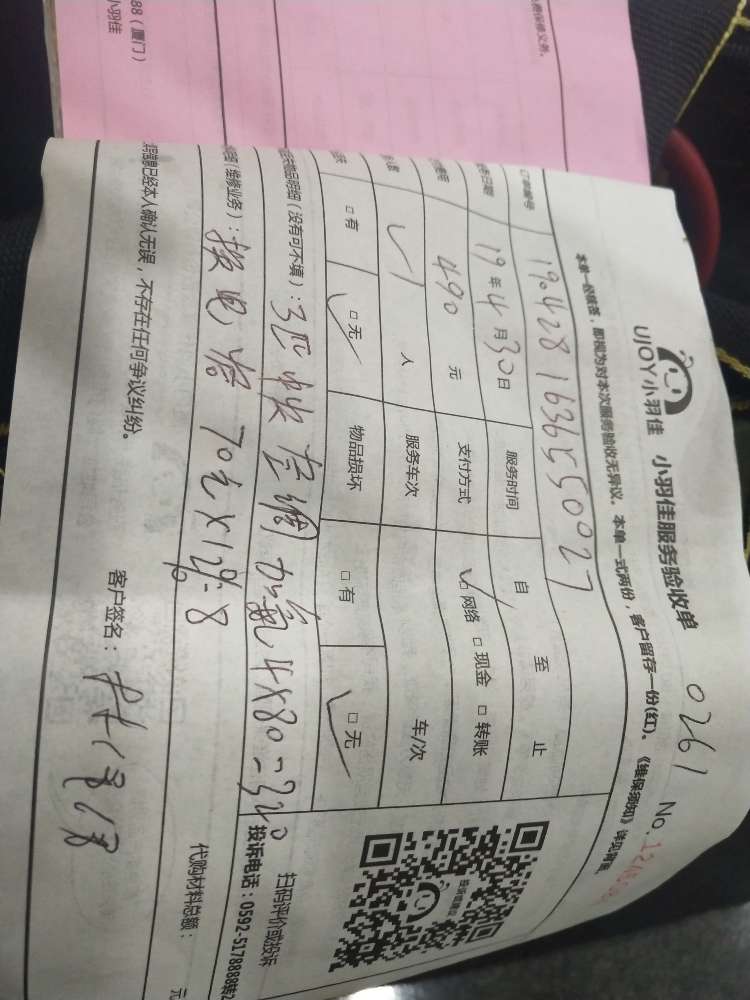 88(厦门)
小羽佳
费保修义务。
UJOY小羽佳 小羽佳服务验收单 0261 No.
本单一经填签,即视为对本次服务验收无异议。本单一式两份,客户留存一份(红)。《维保须知》详见背面。
1904281636550027
日期 19年4月30日 服务时间 自 至 止
490 元 支付方式 ☑网络 □现金 □转账
1 人 服务车次 车/次
□有 □无 物品损坏 □有 □无
明细(没有可不填):3匹中央空调加氟4×80=340
(维修业务):换电容 70元×1
代购材料总额: 元
扫码评价或投诉
投诉电话:0592-5178888转2
息已经本人确认无误,不存在任何争议纠纷。
客户签名: